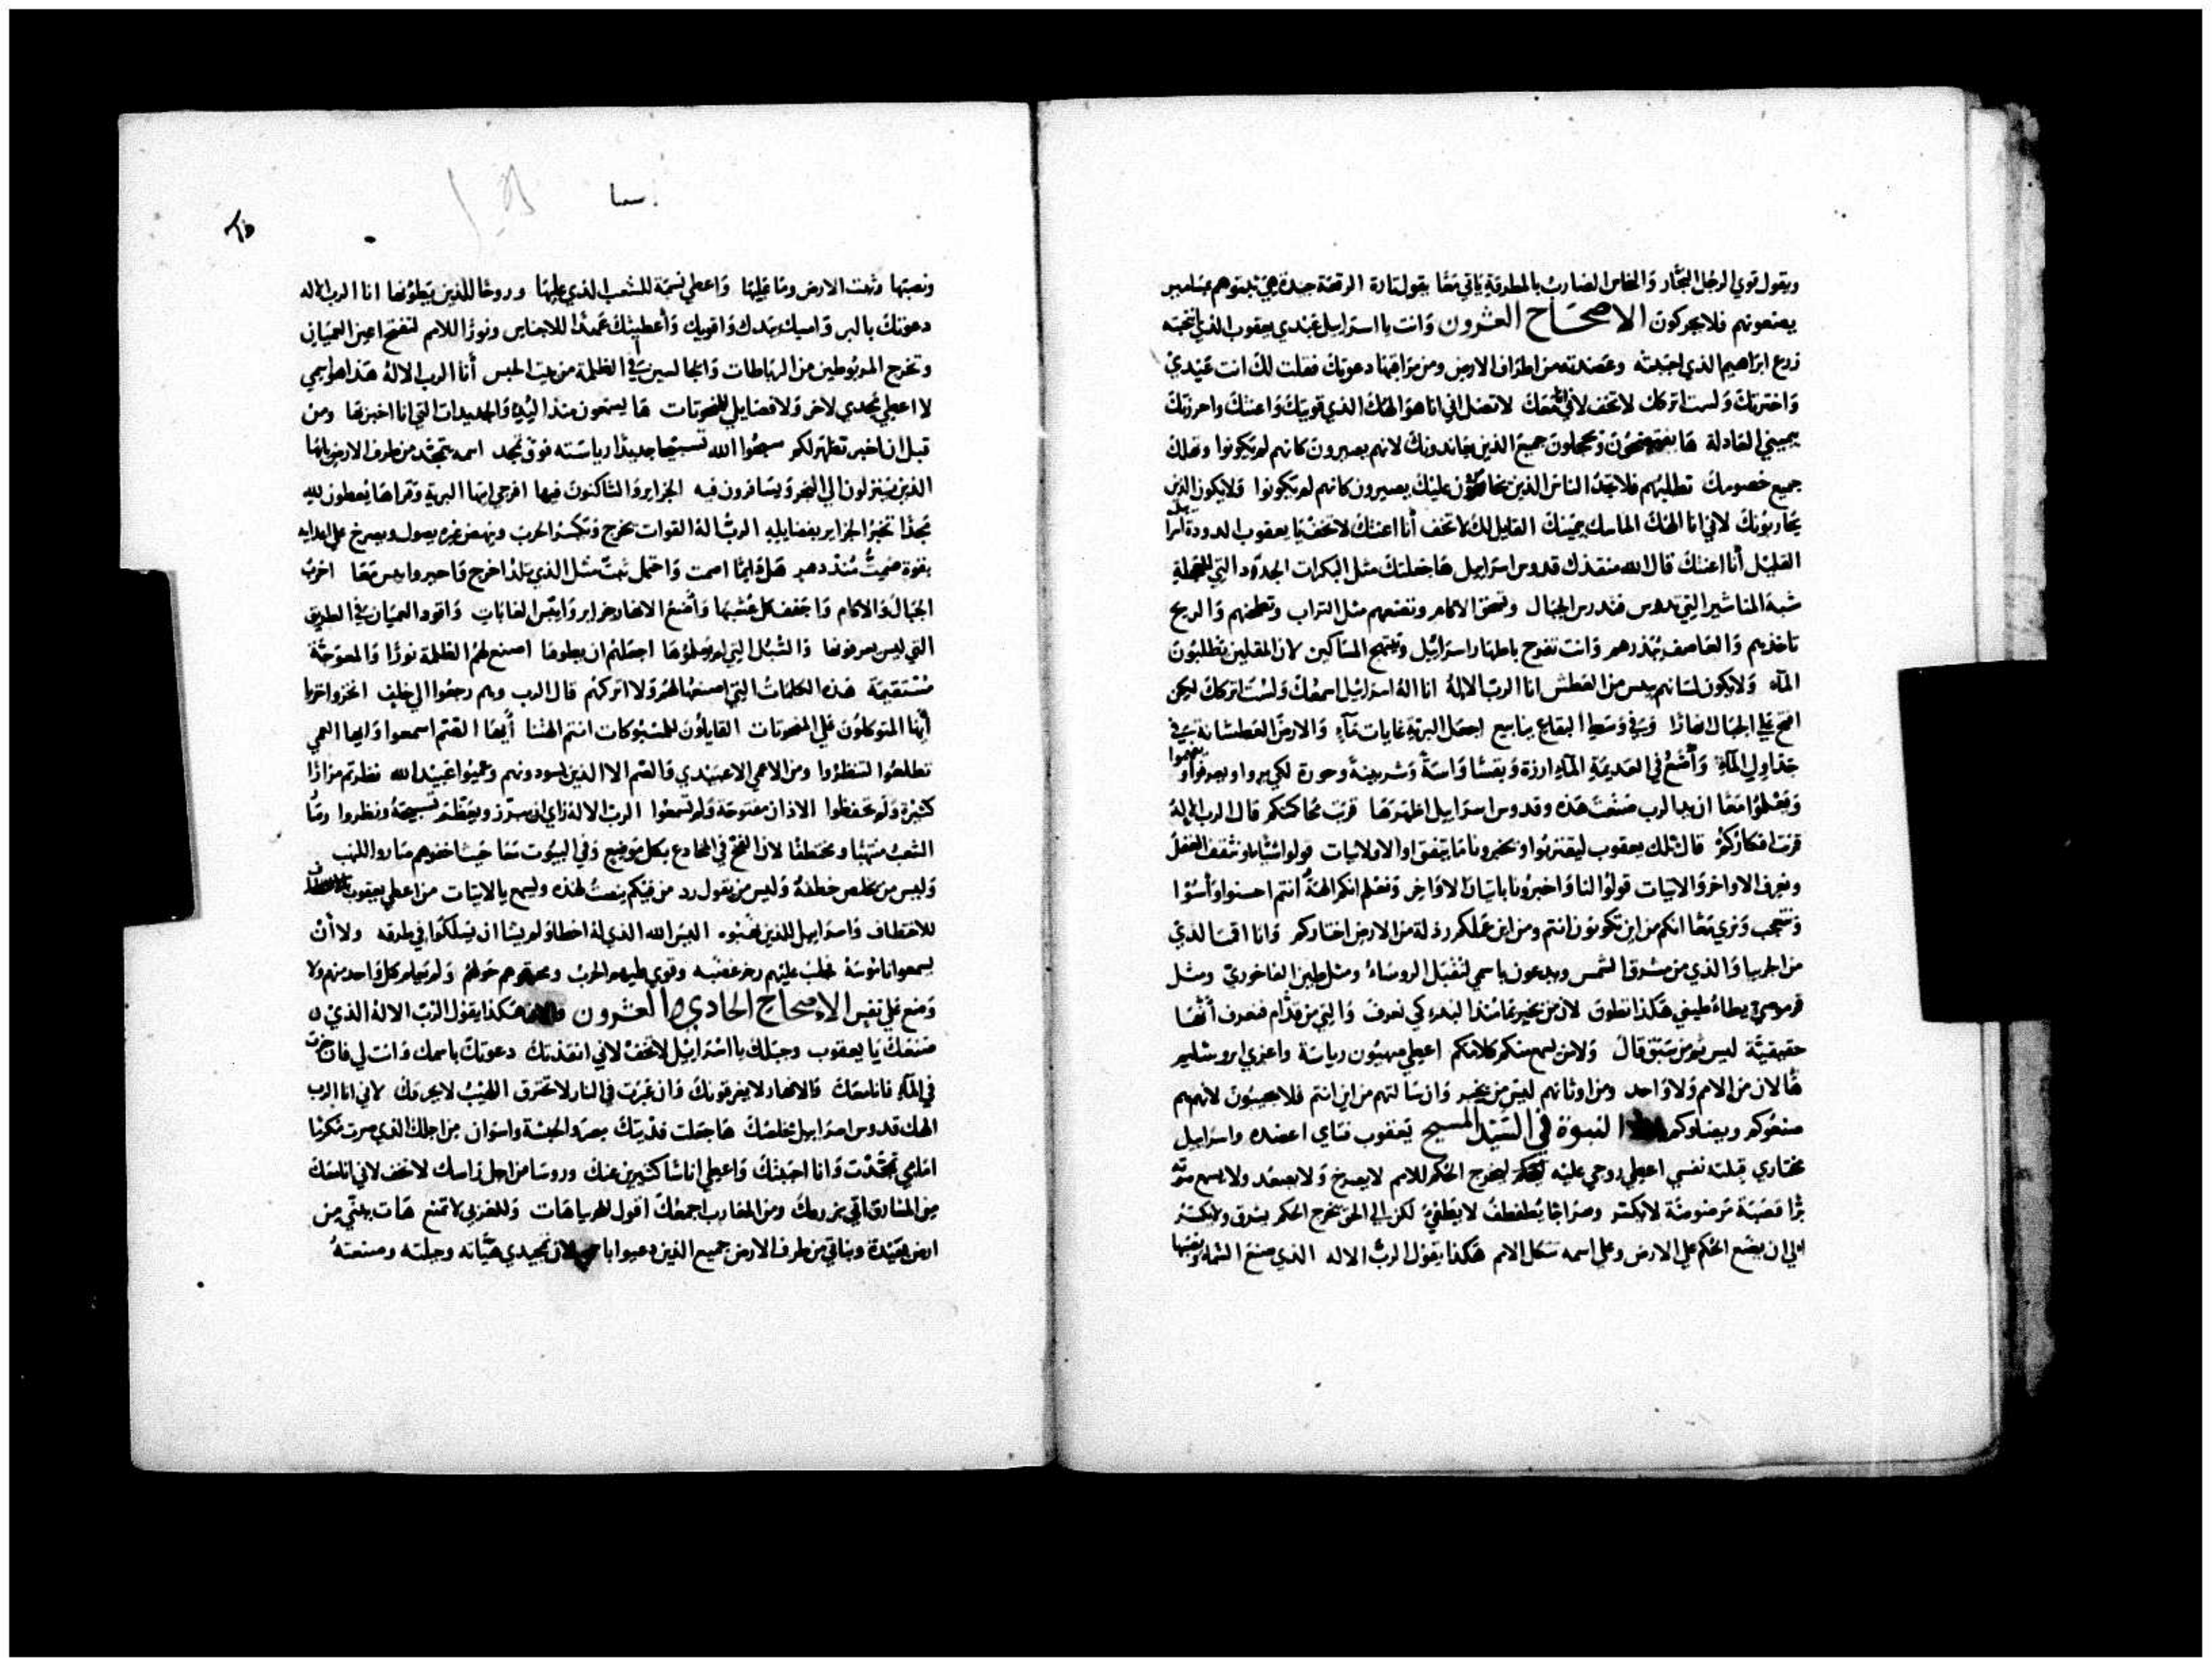 ويقول قوي الرجل النجار والنحاس الضارب بالمطرقة ياتي معا يقول تارة الرقعة جيدة هي ثبتوهم بمسامير
يضعونهم فلا يحركون الاصحاح العشرون وانت يا اسراييل عبدي يعقوب الذي انتخبته
زرع ابراهيم الذي احببته وعضدته من اطراف الارض ومن مراقبها دعوتك فقلت لك انت عبدي
واخترتك ولست اتركك لا تخف لاني معك لا تضل اني انا هو الهك الذي قويتك واعنتك واحرزتك
بيميني العادلة ها يفتضحون ويخجلون جميع الذين يعاندونك لانهم يصيرون كانهم لم يكونوا وتهلك
جميع خصومك تطلبهم فلا تجد الناس الذين عليك يصيرون كانهم لم يكونوا ولا يكون الذين
يحاربونك لاني انا الهك الماسك يمينك القايل لك لا تخف أنا اعنتك لا تخف يا يعقوب الدودة
القليل أنا اعنتك قال الله منقذك قدوس اسراييل ها جعلتك مثل البكرات الجدد التي للعجلة
شبه المناشير التي تدرس فتدرس الجبال وتسحق الاكام وتضعهم مثل التراب وتطحنهم والريح
تاخذهم والعاصف يبذرهم وانت تفرح باطهار اسراييل ويبتهج المساكين لان المقلين يطلبون
الماء ولا يكون لسانهم يبس من العطش انا الرب الاله انا اله اسراييل اسمعك ولست اتركك ليكن
افتح علي الجبال انهارًا وفي وسط البقاع ينابيع اجعل البرية غايات ماء والارض العطشانة في
جداول الماء وأضع في العديمة الماء ارزة وبقسا واسة وشربينة وحورة لكي يروا ويعرفوا
ويعلموا معا ان يد الرب صنعت هذه وقدوس اسراييل اظهرها قربت محاكمتكم قال الرب الاله
قربت افكاركم قال ملك يعقوب ليقتربوا ويخبرونا ما يتفق او الاولايات قولوا
ونعرف الاواخر والاتيات قولوا لنا واخبرونا باتيات الاواخر ونعلم انكم الهة انتم احسنوا وأسوا
ونتعجب ونري معا انكم من اين تكونون انتم ومن اين عملكم رذلة من الارض اختاركم وانا اقمت الذي
من الجربيا والذي من مشرق الشمس ويدعون باسمي لتقبل الروساء ومثل طين الفاخوري ومثل
يطاء طيني هكذا تطوق لان من يخبر بما منذ البدء كي نعرف والتي من قدام فنعرف أنها
حقيقية ليس من سبق قال ولا من يسمع منكم كلامكم اعطي صهيون رياسة واعزي اروشليم
ها لان من الامم ولا واحد ومن اوثانهم ليس من يخبر وان سالتهم من اين انتم فلا يجيبون لانهم هم
صنعوكم ويضلوكم النبوة في السيد المسيح يعقوب فتاي اعضده واسراييل
مختاري قبلته نفسي اعطي روحي عليه ليخرج الحكم للامم لا يصرخ ولا يصعد ولا يسمع صوته
برا قصبة مرضوضة لا يكسر وسراجًا يطفطف لا يطفي لكن الي الحق يخرج الحكم يشرق ولا يكسر
الي ان يضع الحكم علي الارض وعلي اسمه تتكل الامم هكذا يقول الرب الاله الذي صنع السماء ونصبها
اسعيا
ونصبها وثبت الارض وما عليها واعطي نسمة للشعب الذي عليها وروحًا للذين يطوونها انا الرب الاله
دعوتك بالبر وامسك بيدك واقويك وأعطيتك عهدًا للاجناس ونورًا للامم لتفتح اعين العميان
وتخرج المربوطين من الرباطات والجالسين في الظلمة من بيت الحبس أنا الرب الاله هذا هو اسمي
لا اعطي مجدي لاخر ولا فضايلي للمنحوتات ها يسمعون منذ البديء والجديدات التي انا اخبر بها ومن
قبل ان اخبر تظهر لكم سبحوا الله تسبيحا جديدًا رياسته فوق مجد اسمه يتمجد من طرف الارض
الذين ينزلون الي البحر ويسافرون فيه الجزاير والساكنون فيها افرحي ايتها البرية وقراها يعطون لله
مجدًا تخبر الجزاير بفضايله الرب اله القوات يخرج وتكسر الحرب وينهض غيره يصول ويصرخ علي اعدايه
بقوة صمت منذ دهر هل دايمًا اصمت واحتمل ثبت مثل الذي يلد اخرج واحير وايبس معا اخرب
الجبال والاكام واجفف كل عشبها وأضع الانهار جزاير وايبس الغابات واقود العميان في الطريق
التي ليس يعرفونها والسبل التي لم يعلموها اجعلهم ان يطوها اصنع لهم الظلمة نورًا والمعوجة
مستقيمة هذه الكلمات التي اصنعها لهم ولا اتركهم قال الرب وهم رجعوا الي خلف اخزوا خزيا
أيها المتوكلون علي المنحوتات القايلون للمسبوكات انتم الهتنا أيها الصم اسمعوا وايها العمي
تطلعوا لتنظروا ومن الاعمي الا عبيدي والصم الا الذين يسودونهم وعميوا عبيد الله نظرتم مرارًا
كثيرة ولم تحفظوا الاذان مفتوحة ولم تسمعوا الرب الاله راي ان يبرر ويعظم تسبيحة ونظروا وصار
الشعب منتهبًا ومختطفًا لان الفخ في المخادع بكل موضع وفي البيوت معا حيث اخفوهم صاروا للنهب
وليس من يخلص خطفة وليس من يقول رد من فيكم ينصت لهذه ويسمع يالاتيات من اعطي يعقوب
للاختطاف واسراييل للذين نهبوه اليس الله الذي له اخطاوا ولم يشا ان يسلكوا في طرقه ولا أن
يسمعوا ناموسه فجلب عليهم رجز غضبه وقوي عليهم الحرب ويحرقوهم حولهم ولم يعلم كل واحد منهم ولا
وضع علي نفس الاصحاح الحادي والعشرون هكذا يقول الرب الاله الذي
صنعك يا يعقوب وجبلك يا اسراييل لا تخف لاني انقذتك دعوتك باسمك وانت لي فان جزت
في الماء فانا معك والانهار لا يغرقونك وان عبرت في النار لا تحترق اللهيب لا يحرقك لاني انا الرب
الهك قدوس اسراييل مخلصك ها جعلت فديتك مصر والحبشة واسوان من اجلك الذي صرت مكرمًا
امامي تمجدت وانا احببتك واعطي اناسًا كثيرين عنك وروسا من اجل راسك لا تخف لاني انا معك
من المشارق اتي بزرعك ومن المغارب اجمعك اقول للجربيا هات وللغربي لا تمنع هات بني من
ارض بعيدة وبناتي من طرف الارض جميع الذين دعيوا باسمي لان بمجدي هياته وجبلته وصنعته